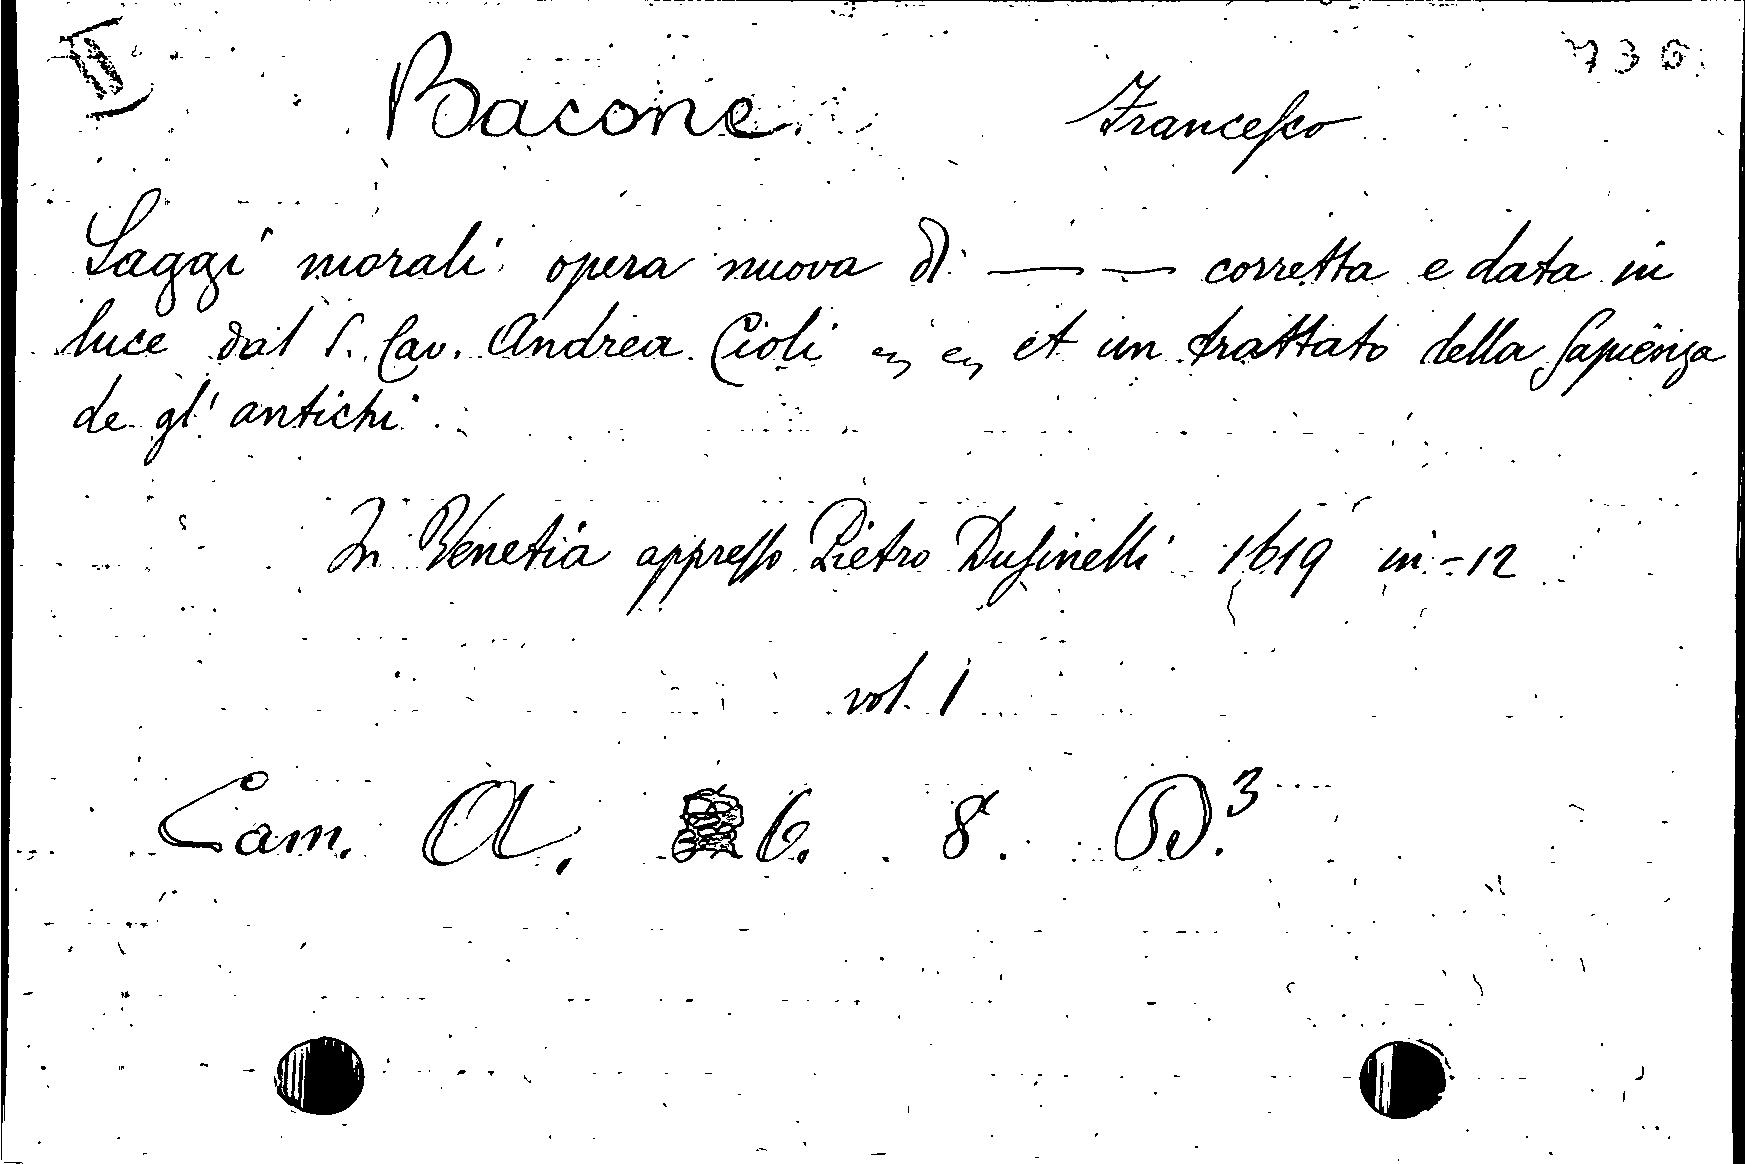 II 730.
Bacone Francesco
Saggi morali opera nuova di — — corretta e data in
luce dal S. Cav. Andrea Cioli et un trattato della Sapienza
de gl' antichi
In Venetia appresso Pietro Dusinelli 1619 in-12
vol. 1
Cam. A. 6. 8. D.³